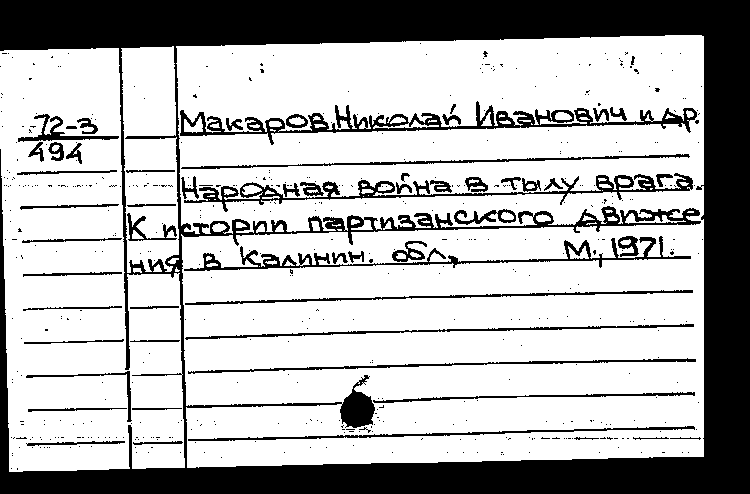 72-3
494
Макаров, Николай Иванович и др.
Народная война в тылу врага.
К истории партизанского движе
ния в Калинин. обл., М., 1971.